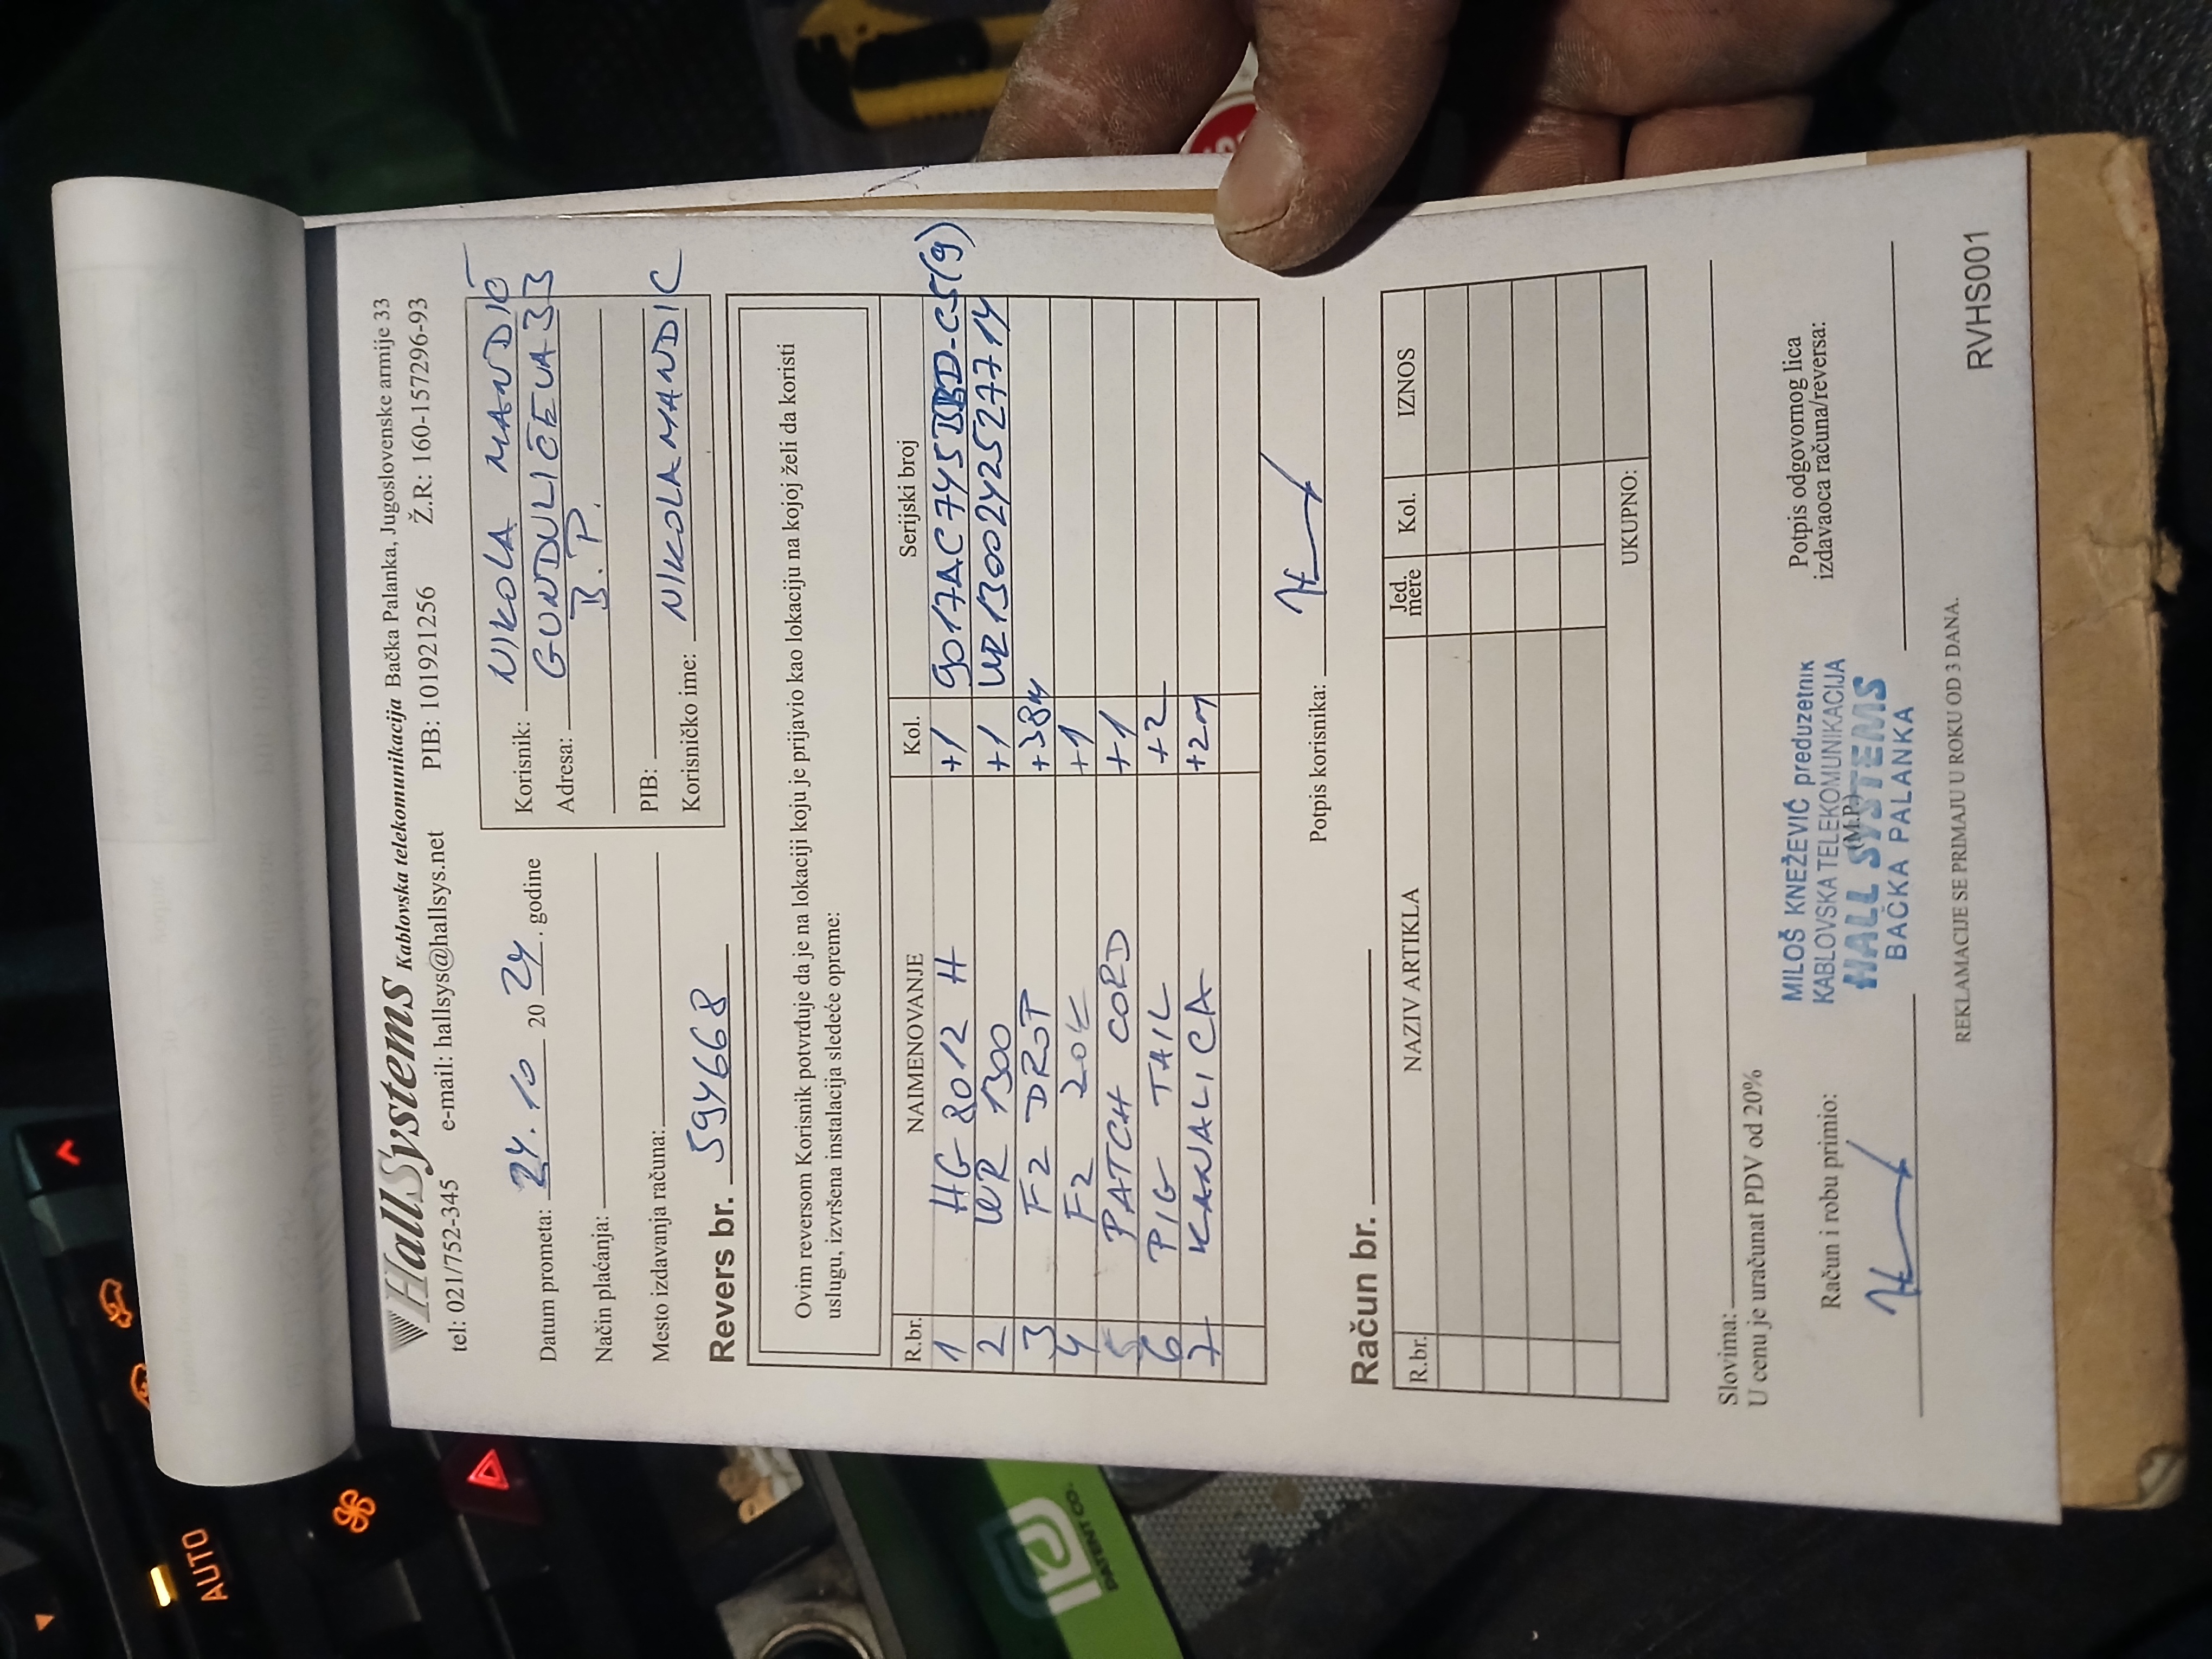 HallSystems Kablovska telekomunikacija Bačka Palanka, Jugoslovenske armije 33
tel: 021/752-345 e-mail: hallsys@hallsys.net PIB: 101921256 Ž.R: 160-157296-93
Datum prometa: 24.10 20 24. godine
Način plaćanja:
Mesto izdavanja računa:
Korisnik: NIKOLA MANDIĆ
Adresa: GUNDULIĆEVA 33
B.P.
PIB:
Korisničko ime: NIKOLAMANDIC
Revers br. 594668
Ovim reversom Korisnik potvrđuje da je na lokaciji koju je prijavio kao lokaciju na kojoj želi da koristi
uslugu, izvršena instalacija sledeće opreme:
R.br. NAIMENOVANJE Kol. Serijski broj
1 HG 8012 H +1 9017AC745 D-C5(9)
2 WR 1300 +1 WR1300242527714
3 F2 DROP +38m
4 F2 +1
5 PATCH CORD +1
6 PIG TAIL +2
7 KANALICA +2m
Potpis korisnika:
Račun br.
R.br. NAZIV ARTIKLA Jed. mere Kol. IZNOS
UKUPNO:
Slovima:
U cenu je uračunat PDV od 20%
Račun i robu primio:
(M.P.)
MILOŠ KNEŽEVIĆ preduzetnik
KABLOVSKA TELEKOMUNIKACIJA
HALL SYSTEMS
BAČKA PALANKA
Potpis odgovornog lica
izdavaoca računa/reversa:
REKLAMACIJE SE PRIMAJU U ROKU OD 3 DANA.
RVHS001
AUTO
PATENT CO.